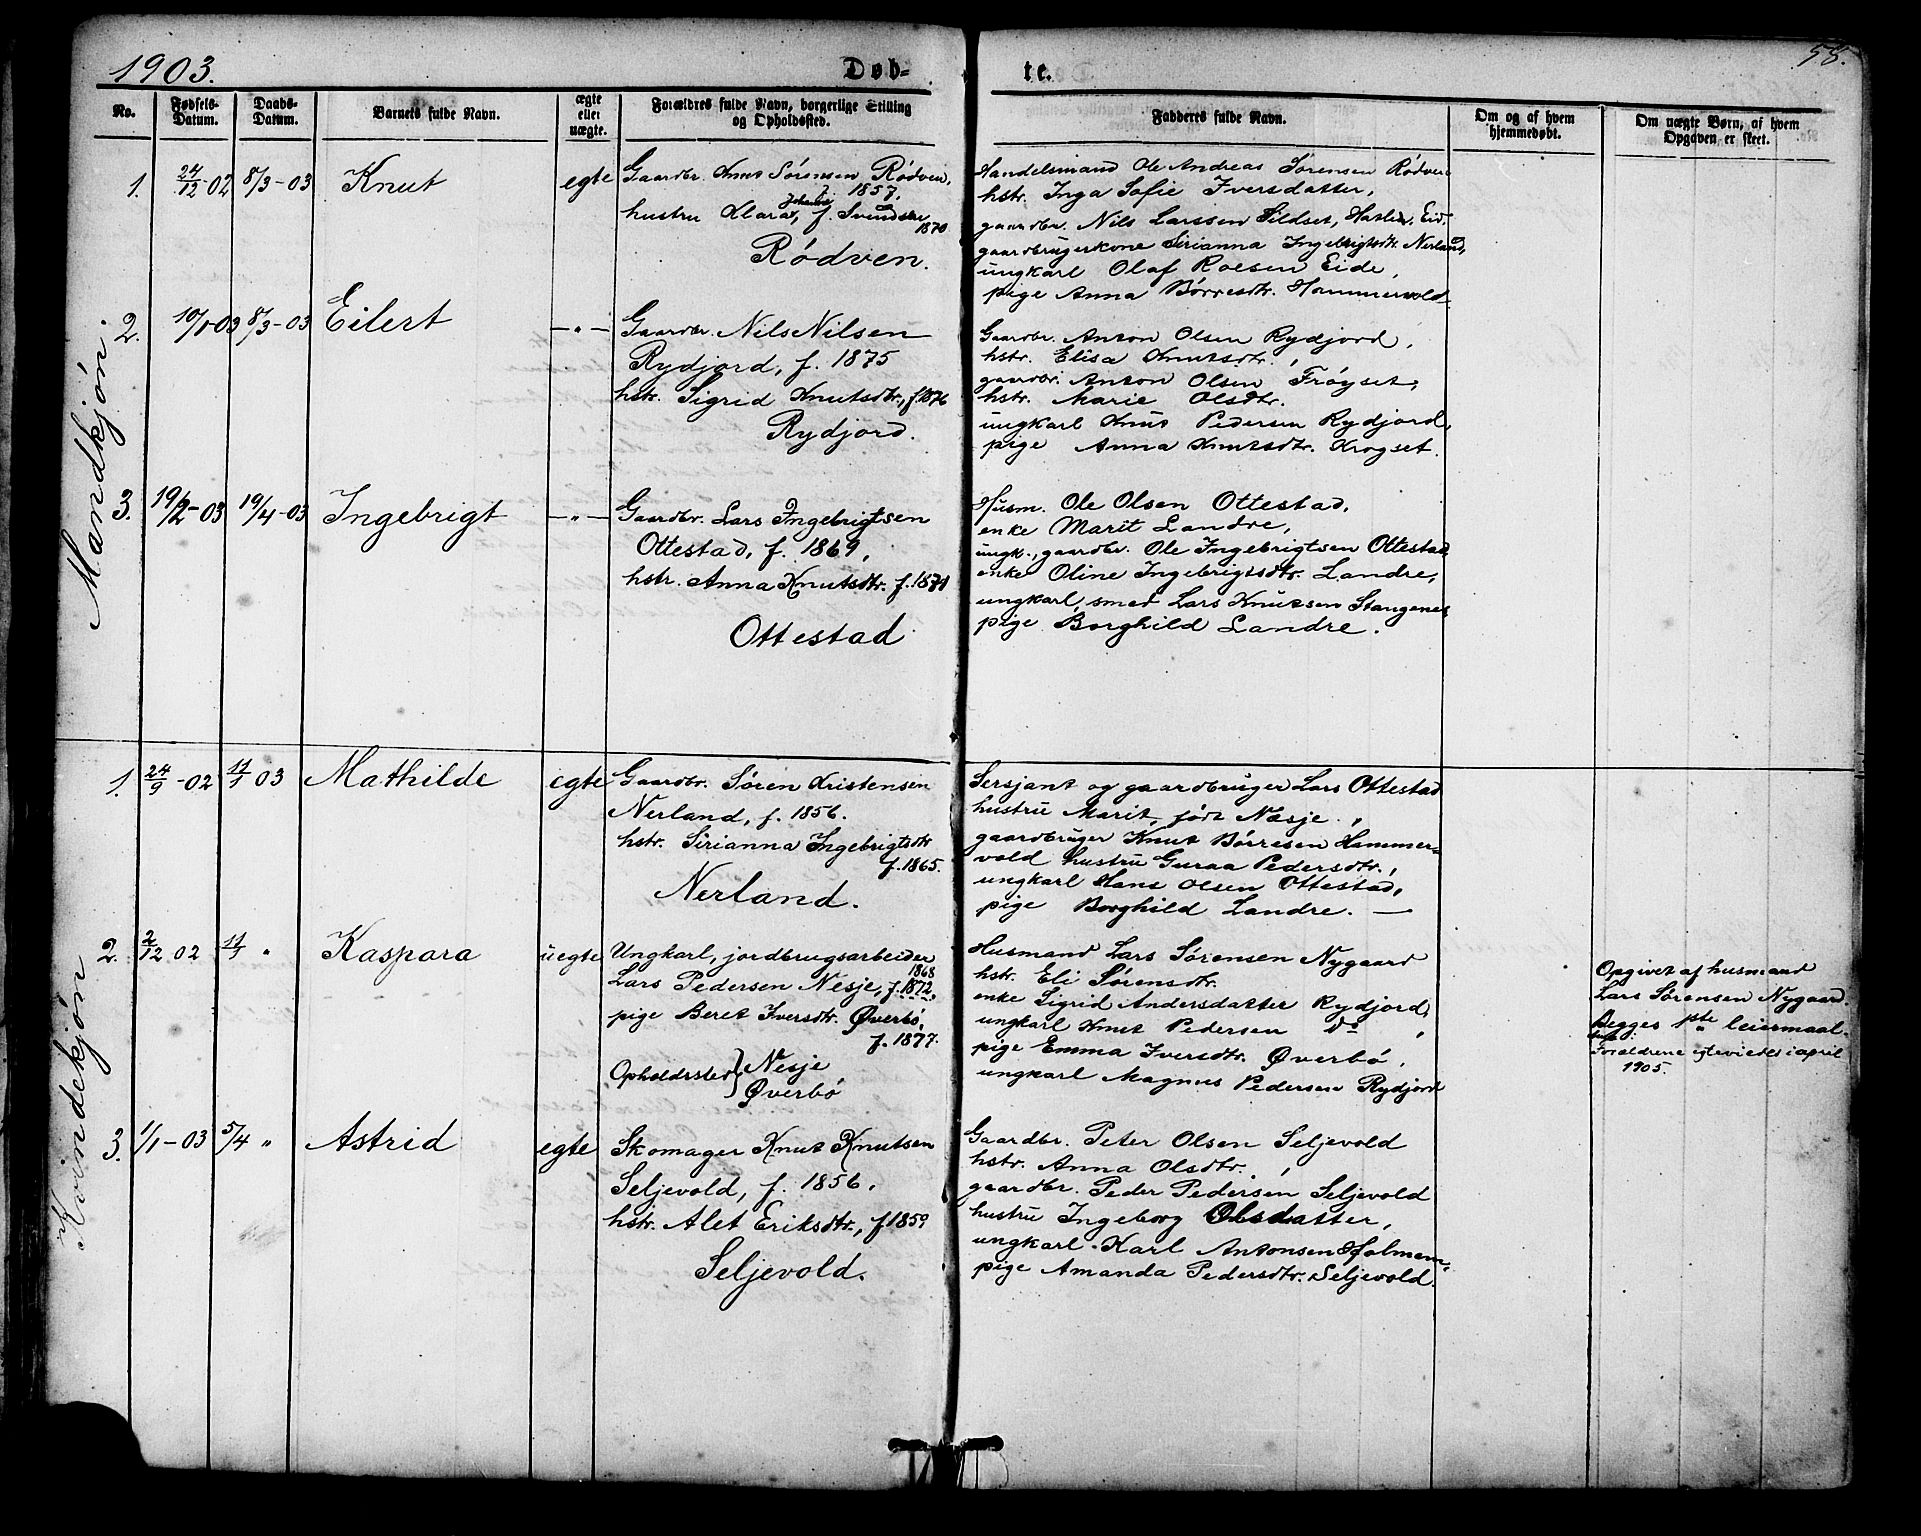 1903.
Døb-
te.
58.
No.
Fødsels-
Datum.
Daabs-
Datum.
Barnets fulde Navn.
ægte
eller
uægte.
Forældres fulde Navn, borgerlige Stilling
og Opholdssted.
Fadderes fulde Navn.
Om og af hvem
hjemmedøbt.
Om uægte Børn, af hvem
Opgaven er skeet.
Mandkjøn.
1.
24/12-02
8/3-03
Knut
egte
Gaardbr. Knut Sørensen Rødven,
f. 1857,
hustru Klara Johanna, f. Svendsen
1870
Rødven.
Handelsmand Ole Andreas Sørensen Rødven
hstr. Inga Sofie Iversdatter,
gaardbr. Nils Larssen Sildset, Eid,
gaardbrugerkone Sirianna Ingebrigtsdtr. Nerland,
ungkarl Olaf Roesen Eide,
pige Anna Børresdtr. Hammervold
2.
10/1-03
8/3-03
Eilert
-"-
Gaardbr. Nils Nilsen
Rydjord, f. 1875
hstr. Sigrid Knutsdtr., f. 1876
Rydjord.
Gaardbr. Anton Olsen Rydjord,
hstr. Elisa Knutsdtr.,
gaardbr. Anton Olsen Frøyset,
hstr. Marie Olsdtr.
ungkarl Knut Pedersen Rydjord,
pige Anna Knutsdtr. Krogset.
3.
19/2-03
19/4-03
Ingebrigt
-"-
Gaardbr. Lars Ingebrigtsen
Ottestad, f. 1869,
hstr. Anna Knutsdtr. f. 1871
Ottestad
Husm. Ole Olsen Ottestad,
enke Marit Landre,
ungk., gaardbr. Ole Ingebrigtsen Ottestad,
enke Oline Ingebrigtsdtr. Landre,
ungkarl, smed Lars Knutsen Stangenes
pige Borghild Landre.
Kvindekjøn
1.
24/9-02
11/1 03
Mathilde
egte
Gaardbr. Søren Kristensen
Nerland, f. 1856.
hstr. Sirianna Ingebrigtsdtr
f. 1865.
Nerland.
Sersjant og gaardbruger Lars Ottestad
hustru Marit, født Nesje,
gaardbruger Knut Børresen Hammer-
vold hustru Guraa Pedersdtr.,
ungkarl Hans Olsen Ottestad,
pige Borghild Landre. —
2.
2/12 02
11/1 "
Kaspara
uegte
Ungkarl, jordbrugsarbeider
1868
Lars Pedersen Nesje, f. 1872,
pige Beret Iversdtr. Øverbø,
f. 1877.
Opholdssted } Nesje
Øverbø
Husmand Lars Sørensen Nygaard
hstr. Eli Sørensdtr.
enke Sigrid Andersdatter Rydjord,
ungkarl Knut Pedersen do,
pige Emma Iversdtr. Øverbø,
ungkarl Magnus Pedersen Rydjord
Opgivet af husmand
Lars Sørensen Nygaard.
Begges 1ste leiermaal.
Forældrene egteviedes i april
1905.
3.
1/1-03
5/4 "
Astrid
egte
Skomager Knut Knutsen
Seljevold, f. 1856,
hstr. Alet Eriksdtr., f 1859
Seljevold.
Gaardbr. Peter Olsen Seljevold
hstr. Anna Olsdtr.,
gaardbr. Peder Pedersen Seljevold
hustru Ingeborg Olsdatter,
ungkarl Karl Antonsen Holmem,
pige Amanda Pedersdtr. Seljevold.